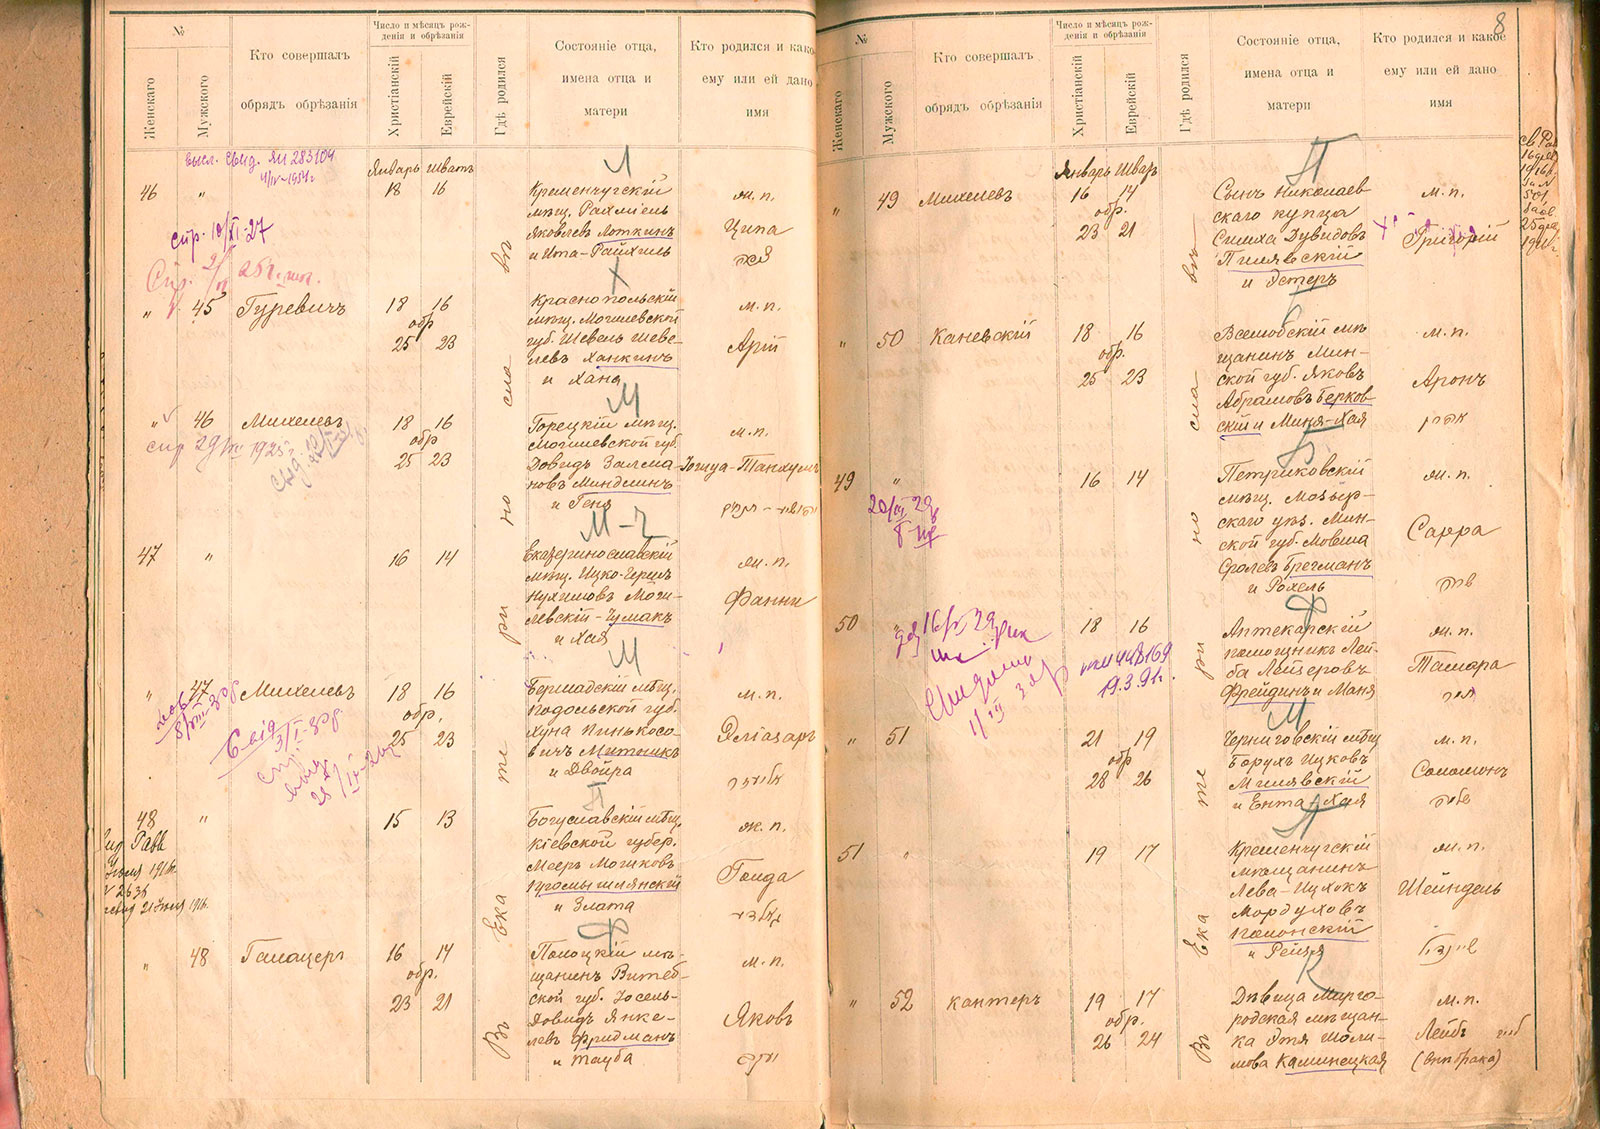 №
Женскаго
Мужского
Кто совершалъ
обрядъ обрѣзанія
Число и мѣсяцъ рож-
денія и обрѣзанія
Христіанскій
Еврейскій
Гдѣ родился
Состояніе отца,
имена отца и
матери
Кто родился и како
ему или ей дано
имя
Январь Шватъ
46 " 18 16
Л
Кременчугскій
мѣщ. Рахміель
Яковлевъ Лоткинъ
и Ита-Райхиль
ж. п.
Ципа
спр. 10/XI-27
" 45 Гуревичъ 18 16
обр
25 23
Х
Краснопольскій
мѣщ. Могилевской
губ. Шевель Шеве-
левъ Ханкинъ
и Хана
м. п.
Арій
" 46 Михелевъ 18 16
обр
25 23
М
Горецкій мѣщ.
Могилевской губ.
Довидъ Залма-
новъ Миндлинъ
и Геня
м. п.
Іошуа-Танхумъ
47 " 16 14
М-Ч
Екатеринославскій
мѣщ. Ицко-Герш
Нухимовъ Моги-
левскій-Чумакъ
и Хая
ж. п.
Фанни
" 47 Михелевъ 18 16
обр.
25 23
М
Бершадскій мѣщ.
Подольской губ.
Хуна Пинькосо-
вичъ Митникъ
и Двойра
м. п.
Эліазаръ
48 " 15 13
Богуславскій мѣщ.
Кіевской губер.
Мееръ Мошковъ
и Злата
ж. п.
Голда
" 48 Галацеръ 16 14
обр.
23 21
Ф
Полоцкій мѣ-
щанинъ Витеб-
ской губ. Іосель-
Довидъ Янке-
левъ Фридманъ
и Тауба
м. п.
Яковъ
Въ Екатеринославѣ
8
№
Женскаго
Мужского
Кто совершалъ
обрядъ обрѣзанія
Число и мѣсяцъ рож-
денія и обрѣзанія
Христіанскій
Еврейскій
Гдѣ родился
Состояніе отца,
имена отца и
матери
Кто родился и какое
ему или ей дано
имя
Январь Шватъ
" 49 Михелевъ 16 14
обр.
23 21
П
Сынъ Николаев
скаго купца
Симха Дувидовъ
Пилявскій
и Эстеръ
м. п.
Григорій
" 50 Каневскій 18 16
обр.
25 23
Б
Вселюбскій мѣ
щанинъ Мин-
ской губ. Яковъ
Абрамовъ Берков-
скій и Миня-Хая
м. п.
Аронъ
49 " 16 14
Б
Петриковскій
мѣщ. Мозыр-
скаго уѣз. Мин-
ской губ. Мовша
Сролевъ Брегманъ
и Рохель
ж. п.
Сарра
50 " 18 16
Ф
Аптекарскій
помощникъ Лей-
ба Лейзеровъ
Фрейдинъ и Маня
ж. п.
Тамара
19.3.91г.
" 51 21 19
обр
28 26
М
Черниговскій мѣщ
Борухъ Ицковъ
Милявскій
и Ента-Хая
м. п.
Соломонъ
51 " 19 17
Кременчугскій
мѣщанинъ
Лева-Ицхокъ
Мордуховъ
Полонскій
и Рейзя
ж. п.
Шейндель
" 52 Кантеръ 19 17
обр.
26 24
К
Дѣвица Мирго-
родская мѣщан-
ка Этя Шоли-
мова Каминецкая
м. п.
Лейбъ
(внѣ брака)
Въ Екатеринославѣ